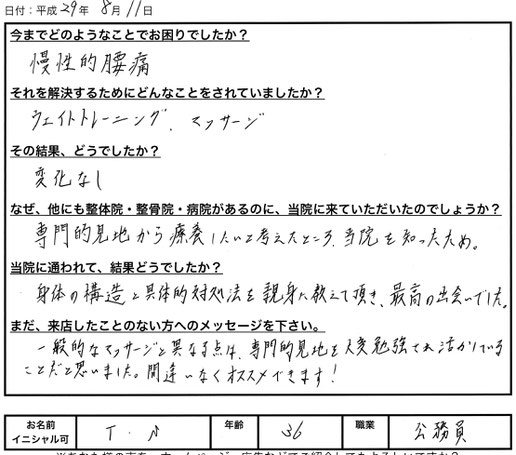 日付：平成29年 8月11日
今までどのようなことでお困りでしたか？
慢性的腰痛
それを解決するためにどんなことをされていましたか？
ウェイトトレーニング、マッサージ
その結果、どうでしたか？
変化なし
なぜ、他にも整体院・整骨院・病院があるのに、当院に来ていただいたのでしょうか？
専門的見地から療養したいと考えたところ、当院を知ったため。
当院に通われて、結果どうでしたか？
身体の構造と具体的対処法を親身に教えて頂き、最高の出会いでした。
まだ、来店したことのない方へのメッセージを下さい。
一般的なマッサージと異なる点は、専門的見地を大変勉強され活かしている
ことだと思いました。間違いなくオススメできます！
お名前 イニシャル可 T・N 年齢 36 職業 公務員